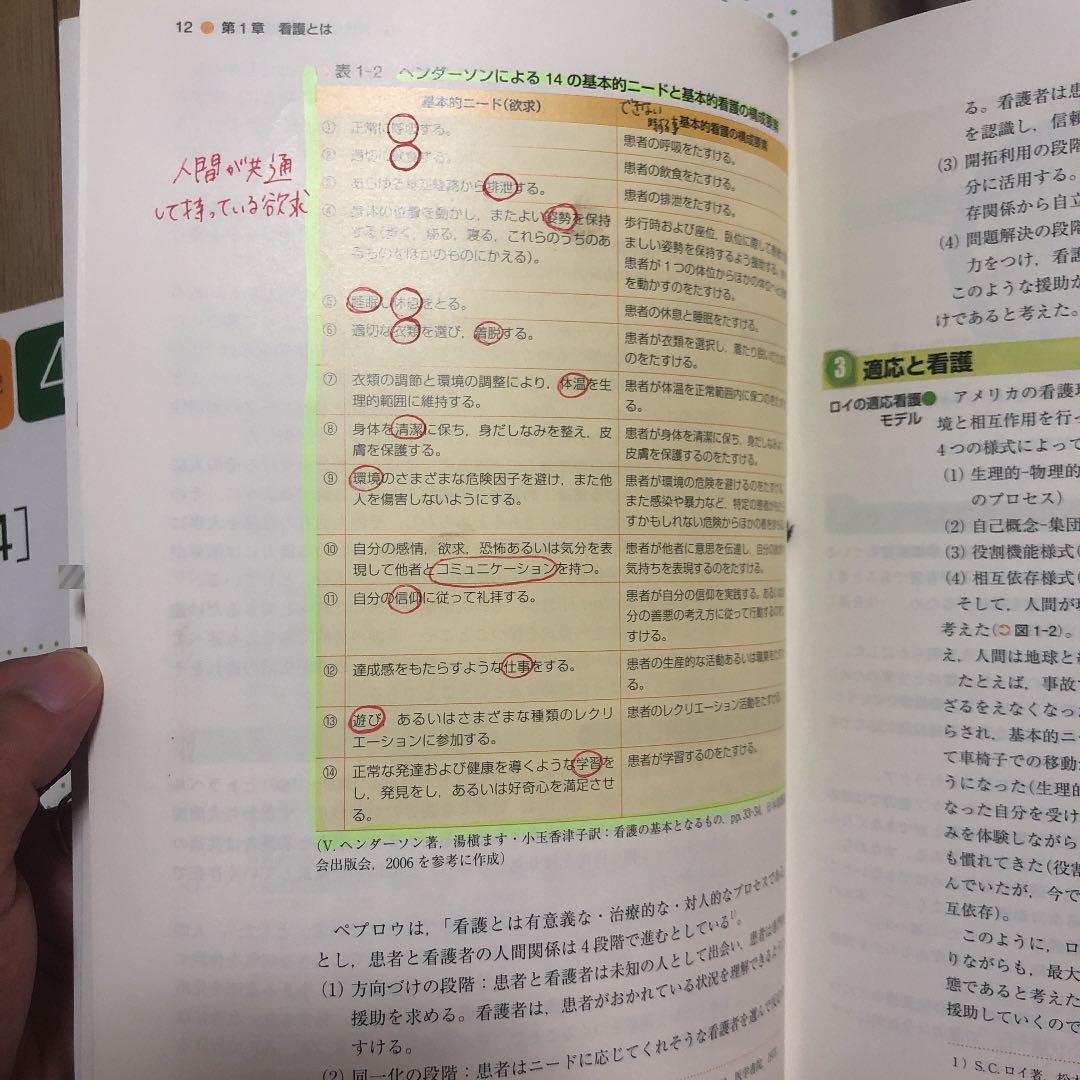 12 ● 第1章 看護とは
表1-2 ヘンダーソンによる14の基本的ニードと基本的看護の構成要素
基本的ニード(欲求)
できない
基本的看護の構成要素
① 正常に呼吸する。
患者の呼吸をたすける。
② 適切に飲食する。
患者の飲食をたすける。
③ あらゆる排泄経路から排泄する。
患者の排泄をたすける。
④ 身体の位置を動かし，またよい姿勢を保持
する(歩く，座る，寝る，これらのうちのあ
るものをほかのものにかえる)。
歩行時および座位，臥位に際して患者
ましい姿勢を保持するよう援助する。
患者が1つの体位からほかの体位へと
を動かすのをたすける。
⑤ 睡眠と休息をとる。
患者の休息と睡眠をたすける。
⑥ 適切な衣類を選び，着脱する。
患者が衣類を選択し，着たり脱いだり
のをたすける。
⑦ 衣類の調節と環境の調整により，体温を生
理的範囲に維持する。
患者が体温を正常範囲内に保つのをたす
る。
⑧ 身体を清潔に保ち，身だしなみを整え，皮
膚を保護する。
患者が身体を清潔に保ち，身だしなみよ
皮膚を保護するのをたすける。
⑨ 環境のさまざまな危険因子を避け，また他
人を傷害しないようにする。
患者が環境の危険を避けるのをたすける。
また感染や暴力など，特定の患者がもた
すかもしれない危険からほかの者を
⑩ 自分の感情，欲求，恐怖あるいは気分を表
現して他者とコミュニケーションを持つ。
患者が他者に意思を伝達し，自分の欲求
気持ちを表現するのをたすける。
⑪ 自分の信仰に従って礼拝する。
患者が自分の信仰を実践する，あるいは
分の善悪の考え方に従って行動するのを
すける。
⑫ 達成感をもたらすような仕事をする。
患者の生産的な活動あるいは職業をたす
る。
⑬ 遊び，あるいはさまざまな種類のレクリ
エーションに参加する。
患者のレクリエーション活動をたすける。
⑭ 正常な発達および健康を導くような学習を
し，発見をし，あるいは好奇心を満足させ
る。
患者が学習するのをたすける。
人間が共通
して持っている欲求
(V. ヘンダーソン著，湯槇ます・小玉香津子訳：看護の基本となるもの，pp.33-34，日本看護協
会出版会，2006を参考に作成)
ペプロウは，「看護とは有意義な・治療的な・対人的なプロセスである
とし，患者と看護者の人間関係は4段階で進むとしている1)。
(1) 方向づけの段階：患者と看護者は未知の人として出会い，患者は
援助を求める。看護者は，患者がおかれている状況を理解できるよう
すける。
(2) 同一化の段階：患者はニードに応じてくれそうな看護者を選んで
医学書院，
る。看護者は患
を認識し，信頼
(3) 開拓利用の段階
分に活用する。
存関係から自立
(4) 問題解決の段階
力をつけ，看護
このような援助が
けであると考えた。
3 適応と看護
ロイの適応看護●
モデル
アメリカの看護理
境と相互作用を行っ
4つの様式によって
(1) 生理的-物理的
のプロセス)
(2) 自己概念-集団
(3) 役割機能様式(
(4) 相互依存様式(
そして，人間が環
考えた(図1-2)。
え，人間は地球と
たとえば，事故で
ざるをえなくなっ
らされ，基本的ニー
て車椅子での移動
うになった(生理的
なった自分を受け
みを体験しながら
も慣れてきた(役割
んでいたが，今で
互依存)。
このように，ロ
りながらも，最大
態であると考えた
援助していくので
1) S.C. ロイ著，松
4
4]